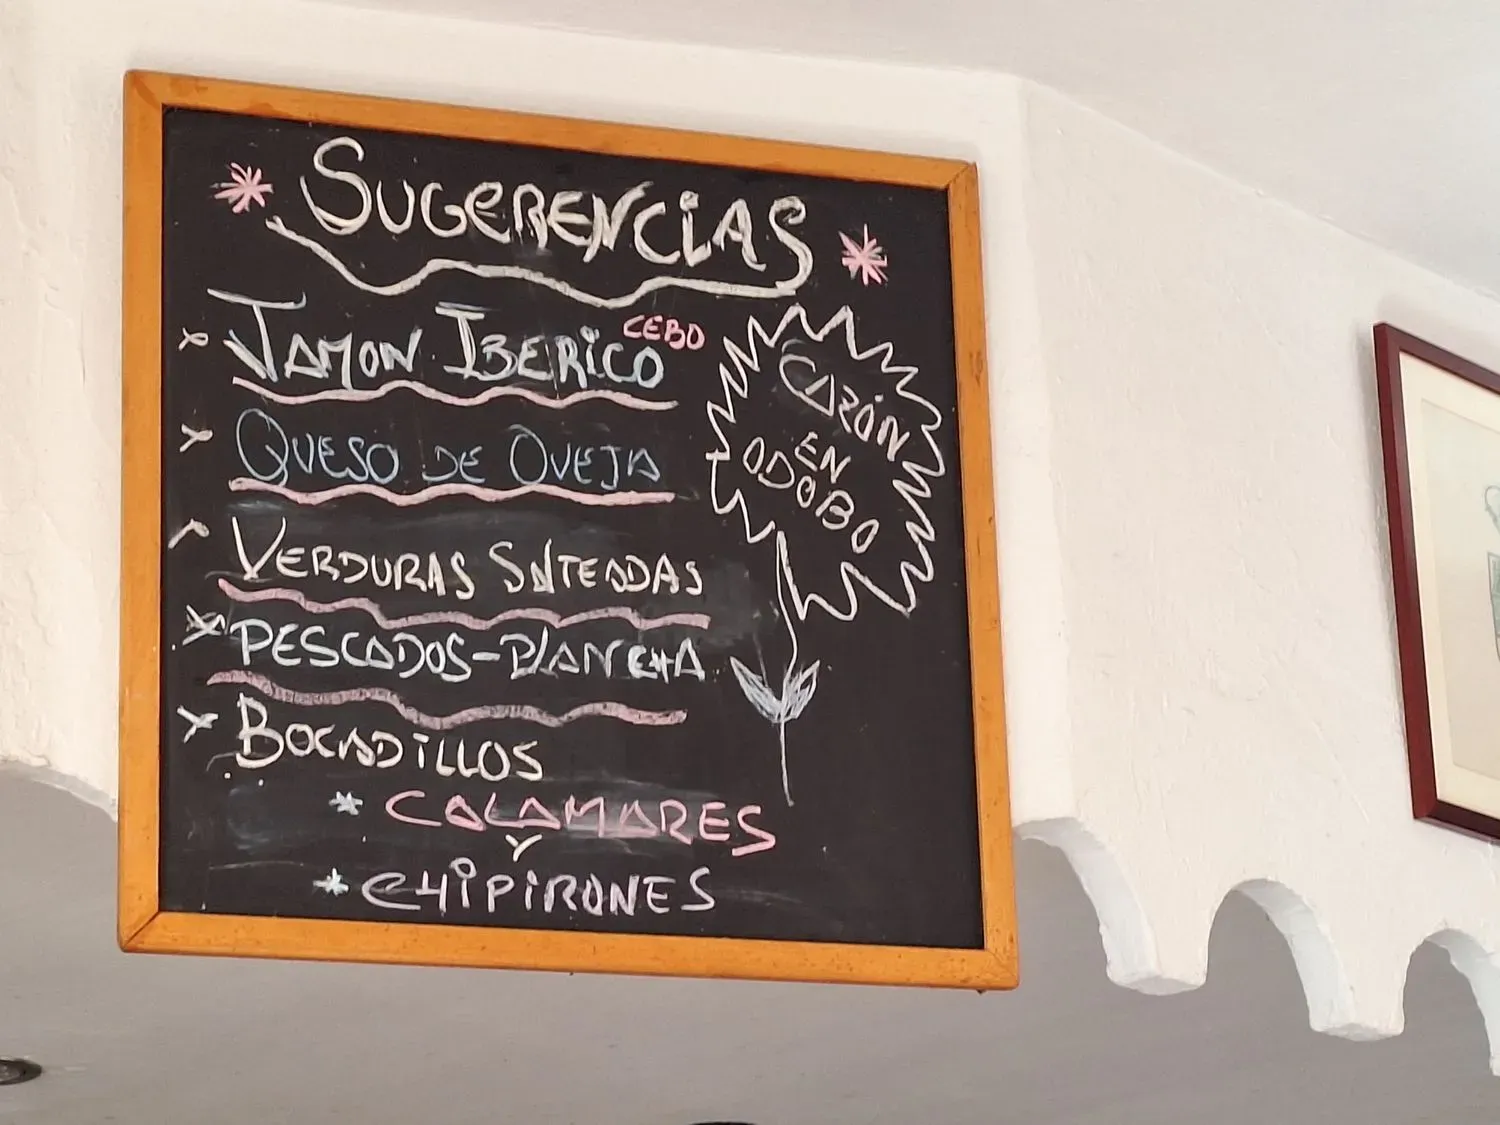 SUGERENCiAS
JAMON IBERiCO CEBO
QUESO DE OVEJA
VERDURAS SALTEADAS
PESCADOS-PLANCHA
BOCADiLLOS
CALAMARES
Y
CHiPiRONES
CAZÓN
EN
ODOBO